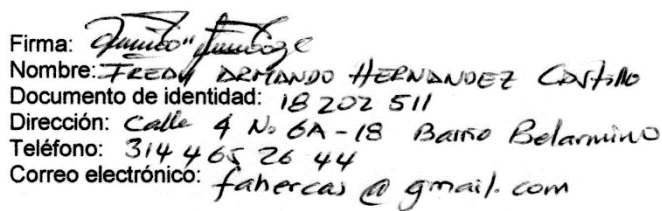 Firma:
Nombre: FREDY ARMANDO HERNANDEZ Castillo
Documento de identidad: 18 202 511
Dirección: Calle 4 No 6A-18 Barrio Belarmino
Teléfono: 314 465 26 44
Correo electrónico: fahercas @ gmail.com